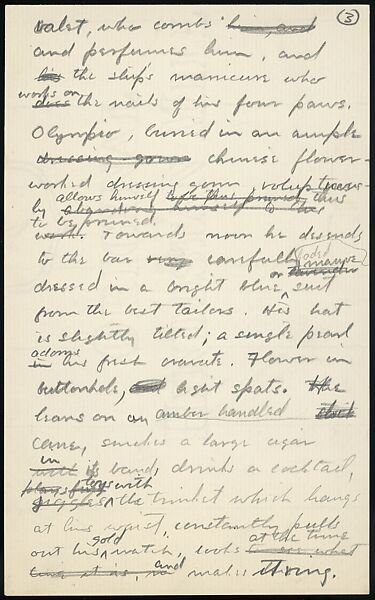 3
valet, who combs him, and
and perfumes him, and
his the ship's manicure who
works on
does the nails of his four paws.
Olympio, buried in an ample
dressing gown chinese flower-
worked dressing gown, voluptuous-
ly allows himself to be thus pruned, thus
to be primed
Towards noon he descends
to the bar very carefully
dressed in a bright blue or mauve suit
from the best tailors. His hat
is slightly tilted; a single pearl
adorns
in his fresh cravate. Flower in
buttonhole, and light spats. He
leans on an amber handled stick
cane, smokes a large cigar
in
with its band, drinks a cocktail,
plays with
the trinket which hangs
at his waist, constantly pulls
out his gold watch, looks at the time
to see what
time it is, and makes